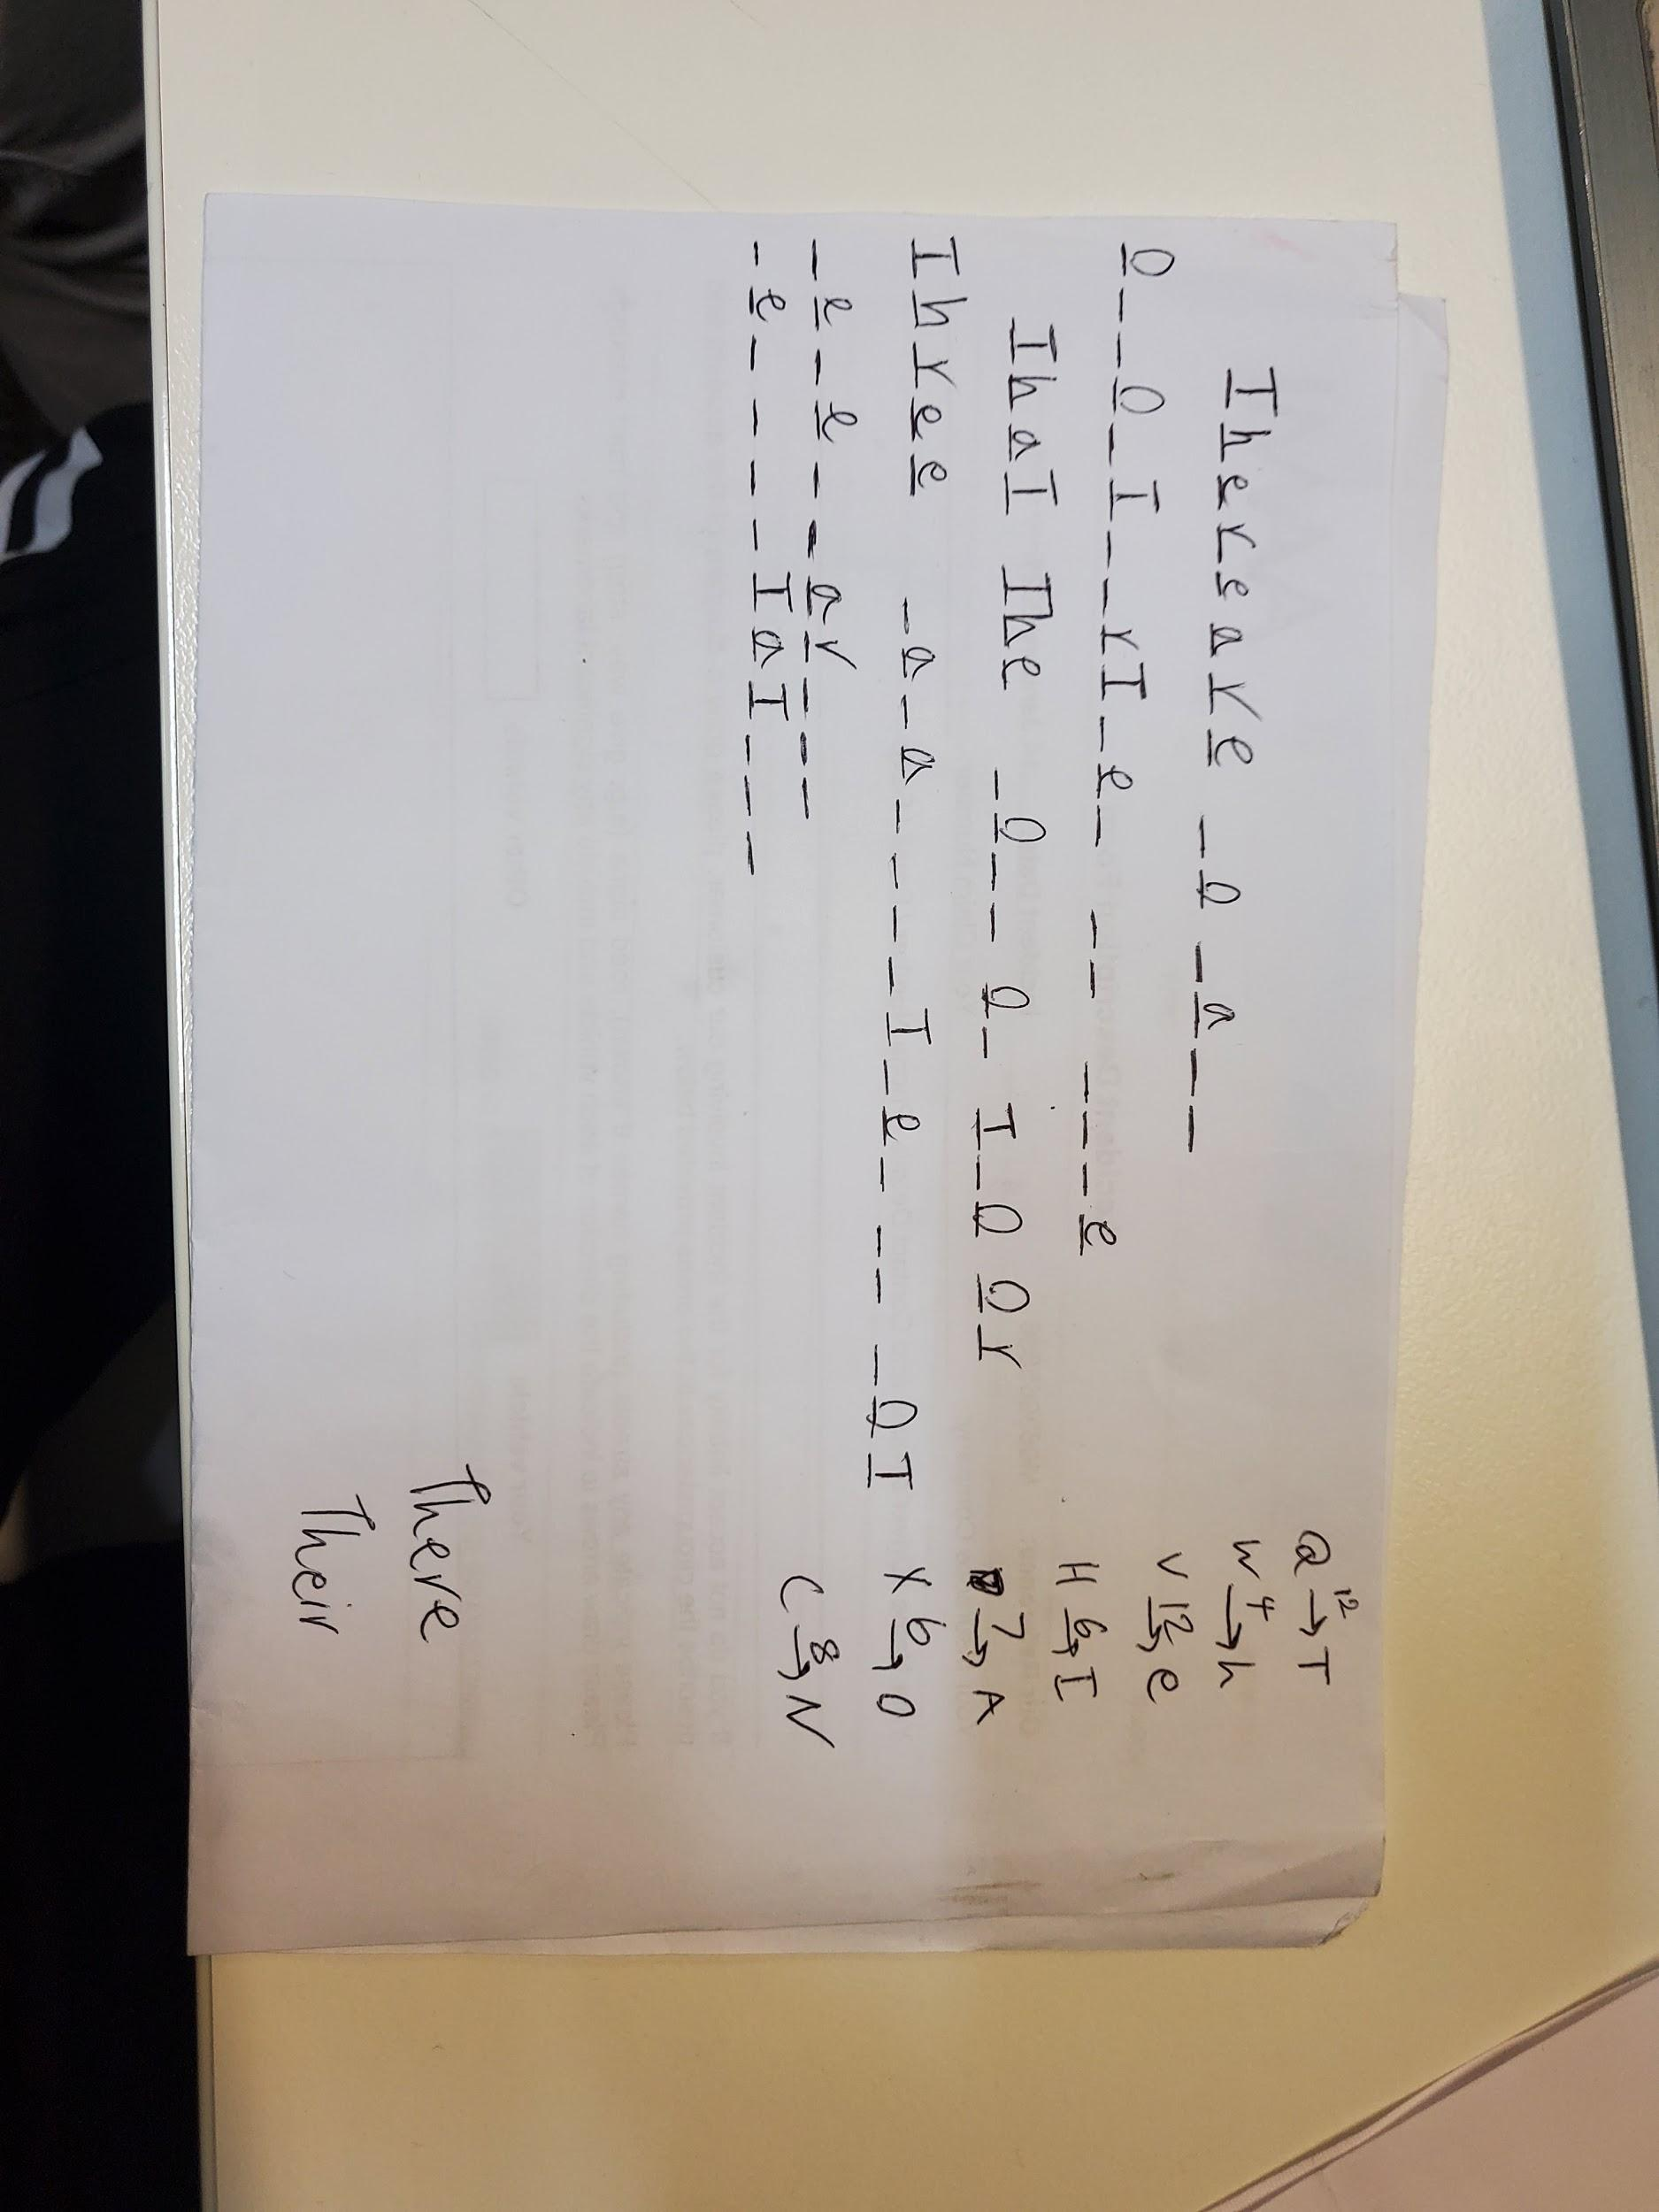 There are _ o _ a _ _
O _ _ O _ T _ _ r T _ e _ _ _ _ _ _ e
That The _ o _ _ o _ T _ o or
Three _ a _ a _ _ _ _ T _ e _ _ _ _ o T
_ e _ e _ _ a r _ _ _
_ e _ _ _ _ T a T _ _ _
Q 12→ T
W 4→ h
V 12→ e
H 6→ I
7→ A
X 6→ O
C 8→ N
There
Their